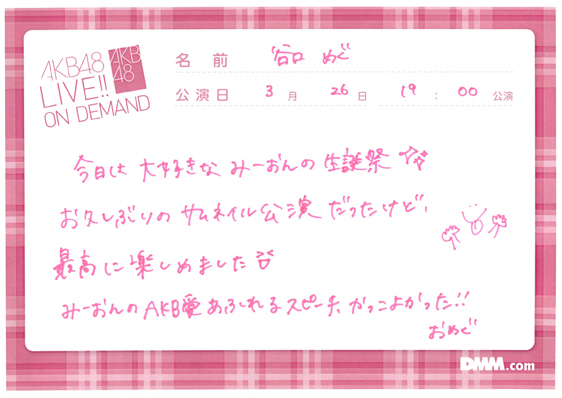 AKB48
LIVE!!
ON DEMAND
AKB
48
名前 谷口 めぐ
公演日 3月 26日 19:00 公演
今日は 大好きな みーおんの 生誕祭
お久しぶりの サムネイル公演 だったけど、
最高に 楽しめました
みーおんの AKB愛 あふれる スピーチ、かっこよかった!!
おめぐ
DMM.com